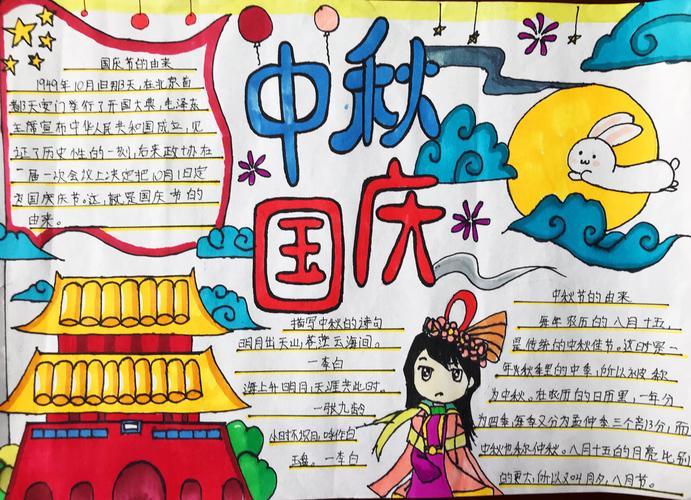 中秋
国庆
国庆节的由来
1949年10月1日那3天,在北京首
都3天安门举行了开国大典,毛泽东
主席宣布中华人民共和国成立,见
证了历史性的一刻,后来政协在
一届一次会议上决定把10月1日定
为国庆庆节。这,就是国庆节的
由来。
描写中秋的诗句
明月出天山,苍茫云海间。
一李白
海上升明月,天涯共此时。
一张九龄
小时不识月,呼作白
玉盘。一李白
中秋节的由来
每年农历的八月十五,
是传统的中秋佳节。这时是一
年秋季的中季,所以
为中秋。在农历的日历里,一年分
为四季,每季又分为孟仲季三个部分,而
中秋也称仲秋。八月十五的月亮比别
的更大,所以又叫月夕,八月节。